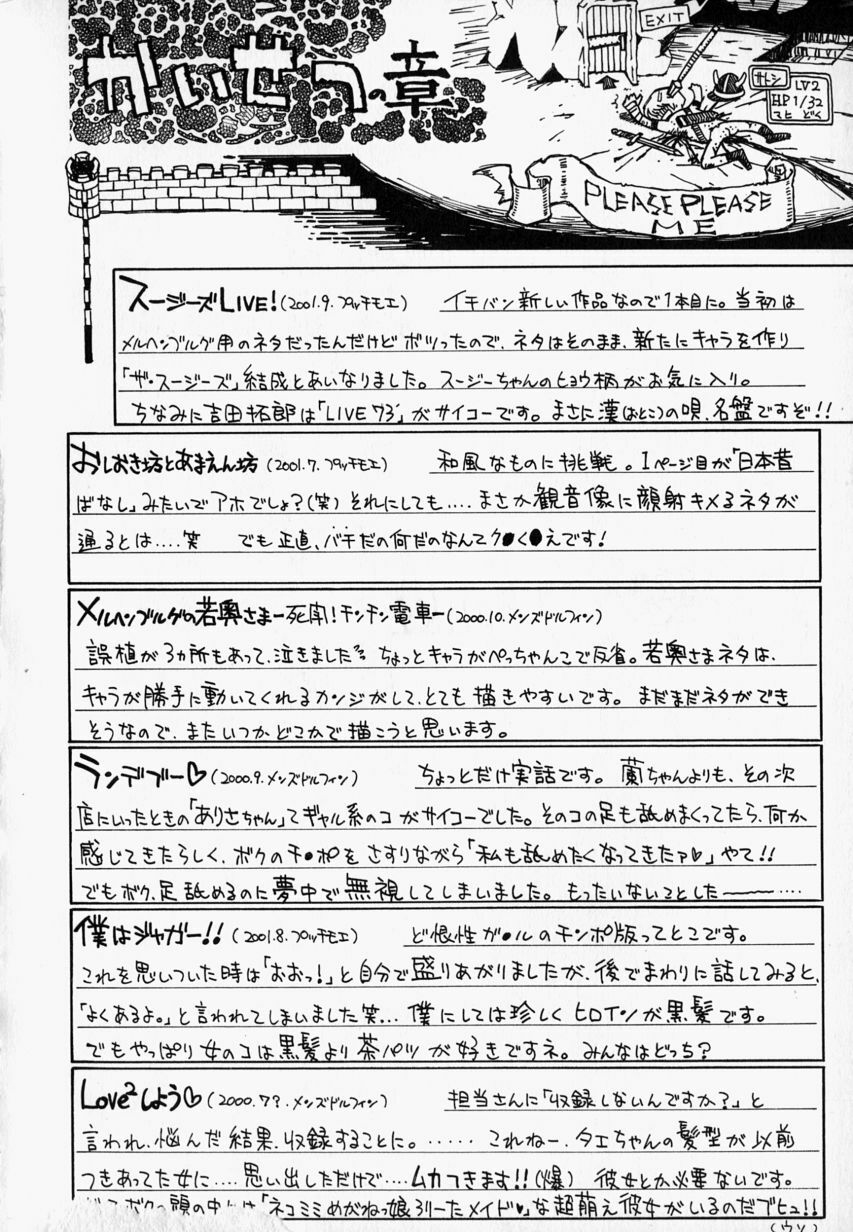 かいせつの章
EXIT
サトシ LV2
HP 1/32
マヒ どく
PLEASE PLEASE
ME
スージーズLIVE!(2001.9.プッチモエ) イチバン新しい作品なので1本目に。当初は
メルヘンブルゲ用のネタだったんだけどボツったので、ネタはそのまま、新たにキャラを作り
「ザ・スージーズ」結成とあいなりました。スージーちゃんのヒョウ柄がお気に入り。
ちなみに吉田拓郎は「LIVE'73」がサイコーです。まさに漢(おとこ)の唄、名盤ですぞ!!
おしおき坊とあまえん坊 (2001.7.プッチモエ) 和風なものに挑戦。1ページ目が「日本昔
ばなし」みたいでアホでしょ?(笑)それにしても....まさか観音像に顔射キメるネタが
通るとは....笑 でも正直、バチだの何だのなんてク●く●えです!
メルヘンブルゲの若奥さまー死牢!チンチン電車ー(2000.10.メンズドルフィン)
誤植が3ヵ所もあって、泣きました。ちょっとキャラがぺっちゃんこで反省。若奥さまネタは、
キャラが勝手に動いてくれるカンジがして、とても描きやすいです。まだまだネタができ
そうなので、またいつかどこかで描こうと思います。
ランデブー♡(2000.9.メンズドルフィン) ちょっとだけ実話です。蘭ちゃんよりも、その次
店にいったときの「ありさちゃん」てギャル系のコがサイコーでした。そのコの足も舐めまくってたら、何か
感じてきたらしく、ボクのチ●ポをさすりながら「私も舐めたくなってきたァ♡」やて!!
でもボク、足舐めるのに夢中で無視してしまいました。もったいないことした〜〜〜....
僕はジャガー!!(2001.8.プッチモエ) ど根性ガ●ルのチンポ版ってとこです。
これを思いついた時は「おおっ!」と自分で盛りあがりましたが、後でまわりに話してみると、
「よくあるよ。」と言われてしまいました笑... 僕にしては珍しくヒロインが黒髪です。
でもやっぱり女のコは黒髪より茶パツが好きですネ。みんなはどっち?
Love²しよう♡(2000.7?.メンズドルフィン) 担当さんに「収録しないんですか?」と
言われ、悩んだ結果、収録することに。......これねー、タエちゃんの髪型が以前
つきあってた女に....思い出しただけで....ムカつきます!!(爆) 彼女とか必要ないです。
ボクの頭の中には「ネコミミめがねっ娘ろりーたメイド♥」な超萌え彼女がいるのだブヒュ!!
(ウソ)